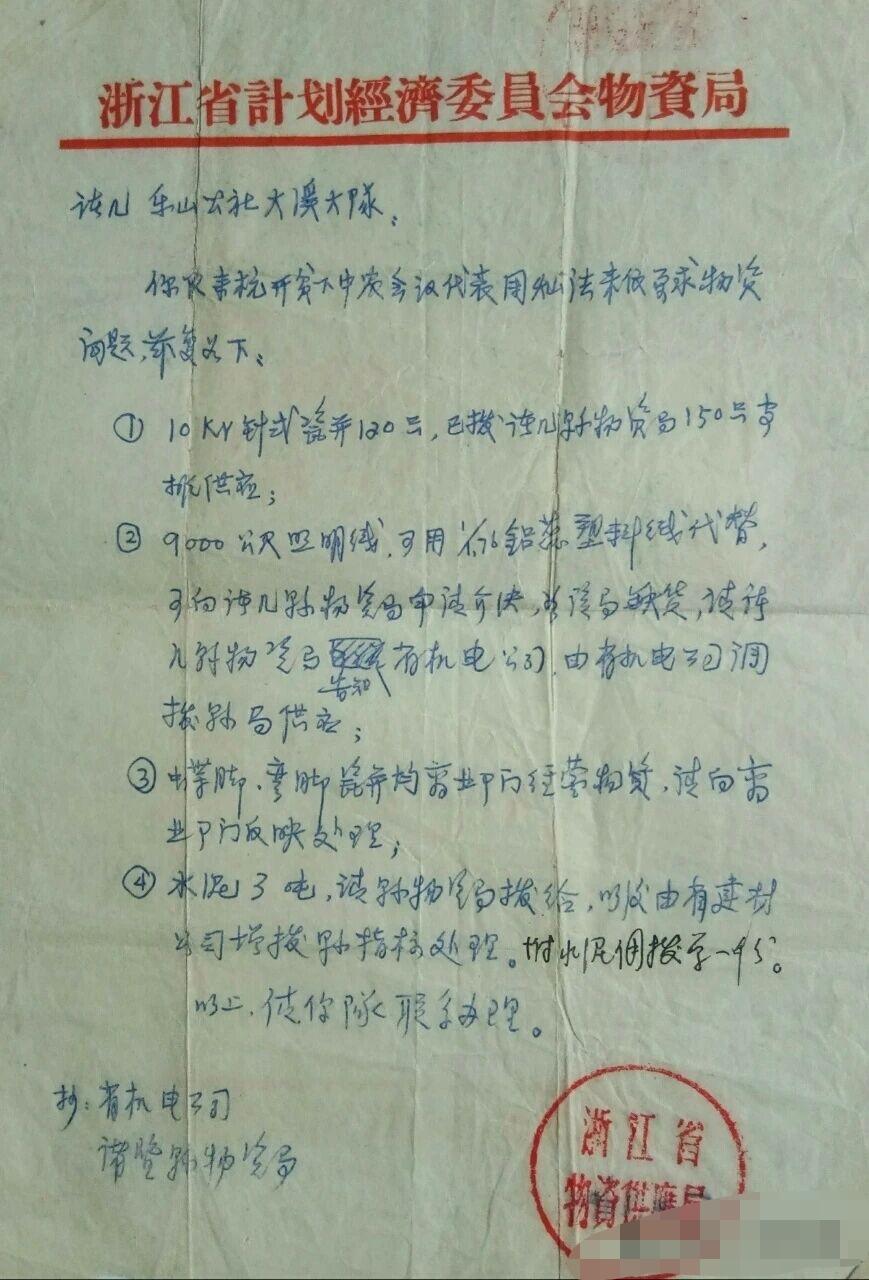 浙江省計划經濟委員会物資局
诸几 乐山公社大溪大队:
你队来杭开贫下中农会议代表周 法来依要求物资
问题,兹复如下:
① 10KV针式瓷并120只,已拨诸几县物资局150只安
排供应;
② 9000公尺照明线,可用 铝蕊塑料线代替,
可向诸几县物资局申请介决,如该局缺货,请诸
几县物资局告知省机电公司,由省机电公司调
拨县局供应;
③ 蝶脚、弯脚瓷并均商业部门经营物资,请向商
业部门反映处理;
④ 水泥3吨,请县物资局拨给,以后由省建材
公司增拨县指标处理。附水泥调拨单一份。
以上,使你队联系办理。
抄:省机电公司
诸暨县物资局
浙江省
物資供應局